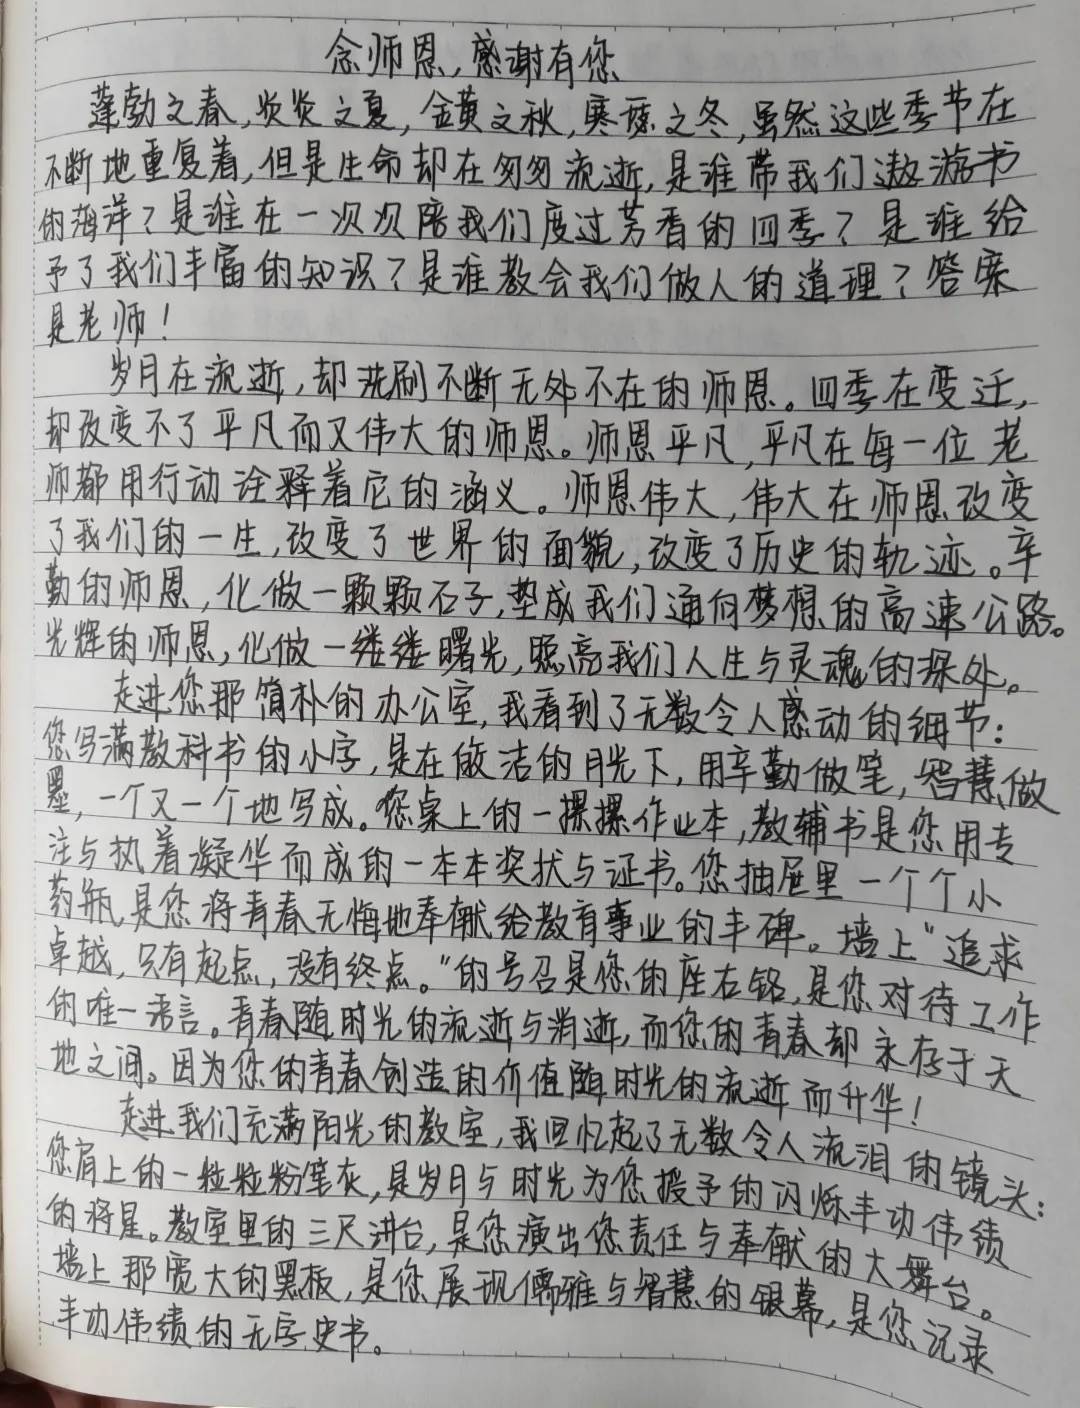 念师恩,感谢有您
蓬勃之春,炎炎之夏,金黄之秋,寒瑟之冬,虽然这些季节在
不断地重复着,但是生命却在匆匆流逝,是谁带我们遨游书
的海洋?是谁在一次次陪我们度过芳香的四季?是谁给
予了我们丰富的知识?是谁教会我们做人的道理?答案
是老师!
岁月在流逝,却洗刷不断无处不在的师恩。四季在变迁,
却改变不了平凡而又伟大的师恩。师恩平凡,平凡在每一位老
师都用行动诠释着它的涵义。师恩伟大,伟大在师恩改变
了我们的一生,改变了世界的面貌,改变了历史的轨迹。辛
勤的师恩,化做一颗颗石子,垫成我们通向梦想的高速公路。
光辉的师恩,化做一缕缕曙光,照亮我们人生与灵魂的深处。
走进您那简朴的办公室,我看到了无数令人感动的细节:
您写满教科书的小字,是在皎洁的月光下,用辛勤做笔,智慧做
墨,一个又一个地写成。您桌上的一摞摞作业本,教辅书是您用专
注与执着凝华而成的一本本奖状与证书。您抽屉里一个个小
药瓶,是您将青春无悔地奉献给教育事业的丰碑。墙上“追求
卓越,只有起点,没有终点。”的号召是您的座右铭,是您对待工作
的唯一誓言。青春随时光的流逝与消逝,而您的青春却永存于天
地之间。因为您的青春创造的价值随时光的流逝而升华!
走进我们充满阳光的教室,我回忆起了无数令人流泪的镜头:
您肩上的一粒粒粉笔灰,是岁月与时光为您授予的闪烁丰功伟绩
的将星。教室里的三尺讲台,是您演出您责任与奉献的大舞台。
墙上那宽大的黑板,是您展现儒雅与智慧的银幕,是您记录
丰功伟绩的无字史书。